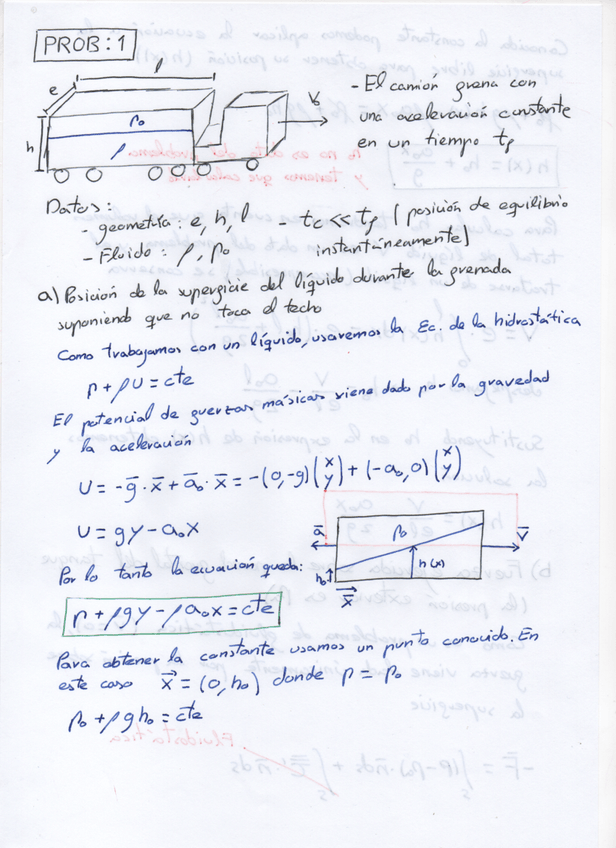 PROB: 1
l
e
h
P₀
ρ
V₀
- El camión frena con
una aceleración constante
en un tiempo t_f
Datos:
geometría: e, h, l - t_c << t_f [posición de equilibrio
- Fluido: ρ, P₀ instantáneamente]
a) Posición de la superficie del líquido durante la frenada
suponiendo que no toca el techo
Como trabajamos con un líquido, usaremos la Ec. de la hidrostática
P + ρU = cte
El potencial de fuerzas másicas viene dado por la gravedad
y la aceleración
U = -g̅·x̅ + a̅₀·x̅ = -(0,-g)(x y) + (-a₀,0)(x y)
U = gy - a₀x
a̅
P₀
v̅
h(x)
h₀
x⃗
Por lo tanto la ecuación queda:
P + ρgy - ρa₀x = cte
Para obtener la constante usamos un punto conocido. En
este caso x⃗ = (0, h₀) donde P = P₀
P₀ + ρgh₀ = cte